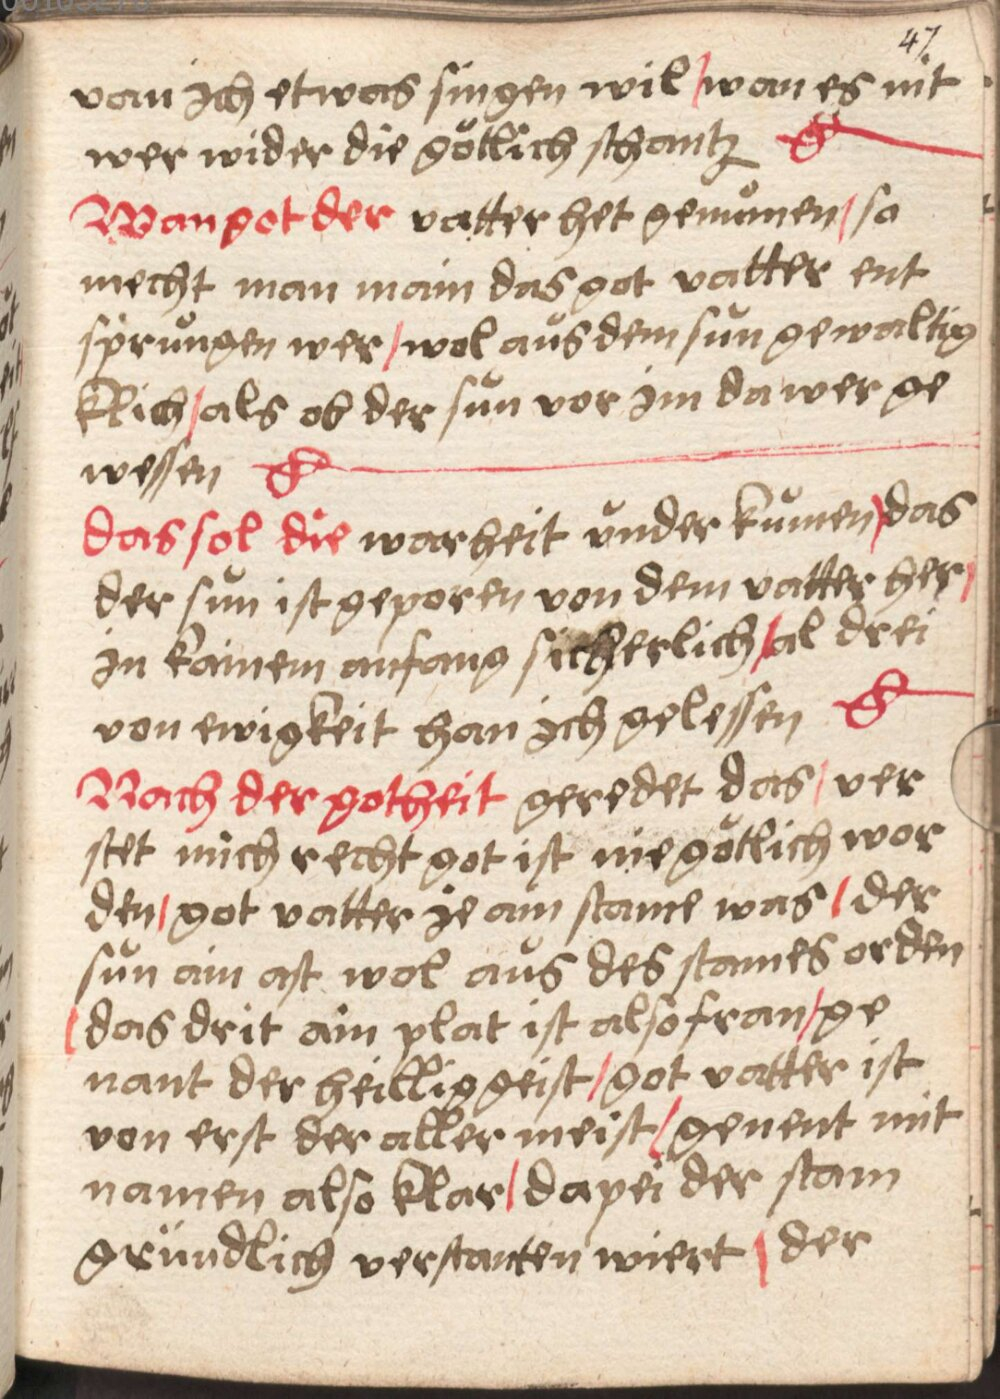 47
von jch etwas singen wil / wan es nit
wer wider die götlich schantz
Wan got der vatter het genumen / so
mecht man main das got vatter ent
sprungen wer / wol aus dem sun gewaltig
klich / als ob der sun vor jm da wer ge
wessen
das sol die warheit under kumen / das
der sun ist geporen von dem vatter her /
jn kainem anfang sicherlich / al drei
von ewigkeit han jch gelessen
Nach der gotheit geredet das / ver
stet mich recht got ist nie götlich wor
den / got vatter je am stame was / der
sun ain ast wol aus des stames orden
/ das drit ain plat ist also fran / ge
nant der heillig geist / got vatter ist
von erst der aller meist / genent mit
namen also klar / dapei der stam
gründlich verstanten wiert / der